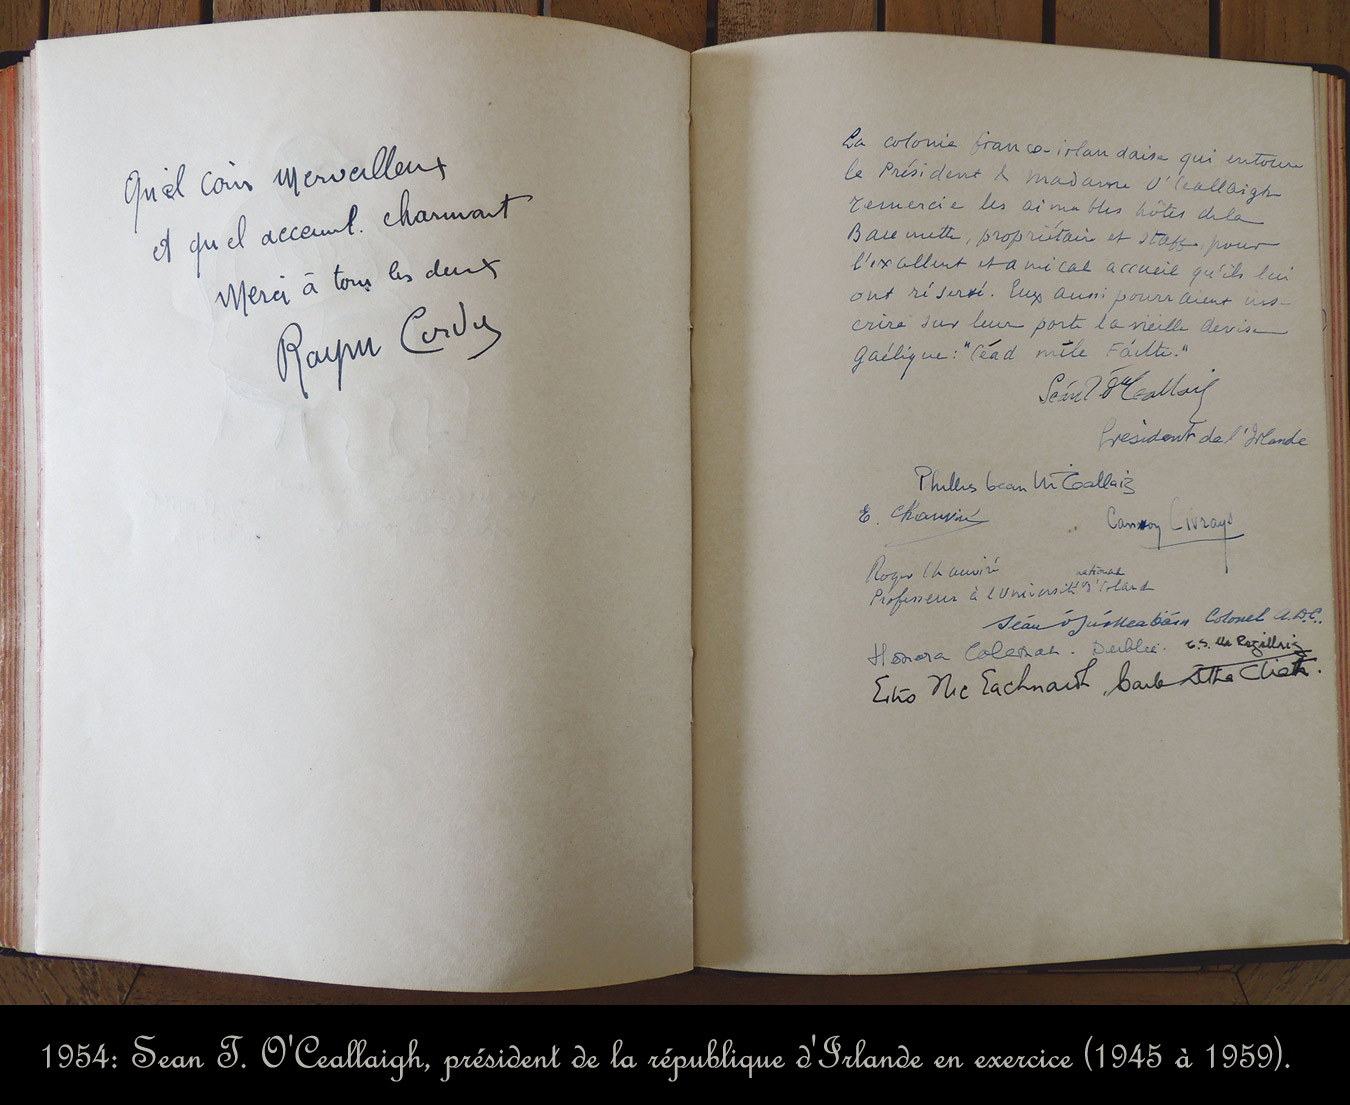 Quel coin merveilleux
et quel acceuil charmant
Merci à tous les deux
Raym Cordy
La colonie franco-irlandaise qui entoure
le Président & madame O'Ceallaigh
remercie les aimables hôtes de la
Baumette, propriétaire et staff, pour
l'excellent et amical accueil qu'ils lui
ont réservé. Eux aussi pourraient ins-
crire sur leur porte la vieille devise
gaélique: "Céad míle Fáilte."
Seán T. Ó Ceallaigh
Président de l'Irlande
Phyllis Bean Uí Ceallaigh
E. Chauviré
Roger Chauviré
national
Professeur à l'Université d'Irlande
Seán Colonel A.D.C.
Honora Coleman.
Nic Eachnaidh
1954: Sean T. O'Ceallaigh, président de la république d'Irlande en exercice (1945 à 1959).